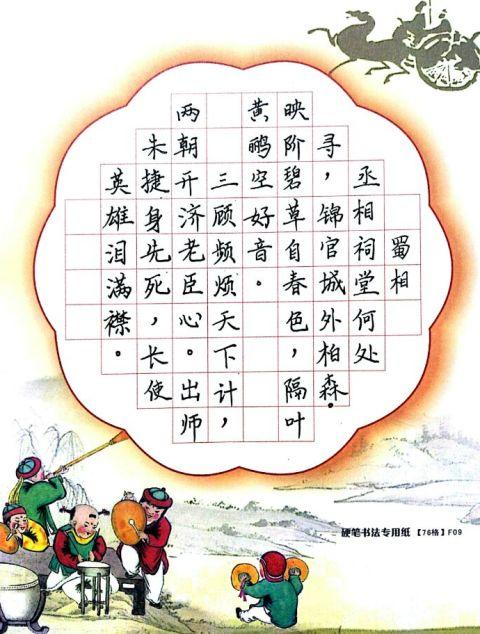 蜀相
丞相祠堂何处
寻，锦官城外柏森。
映阶碧草自春色，隔叶
黄鹂空好音。
三顾频烦天下计，
两朝开济老臣心。出师
朱捷身先死，长使
英雄泪满襟。
硬笔书法专用纸 【76格】F09